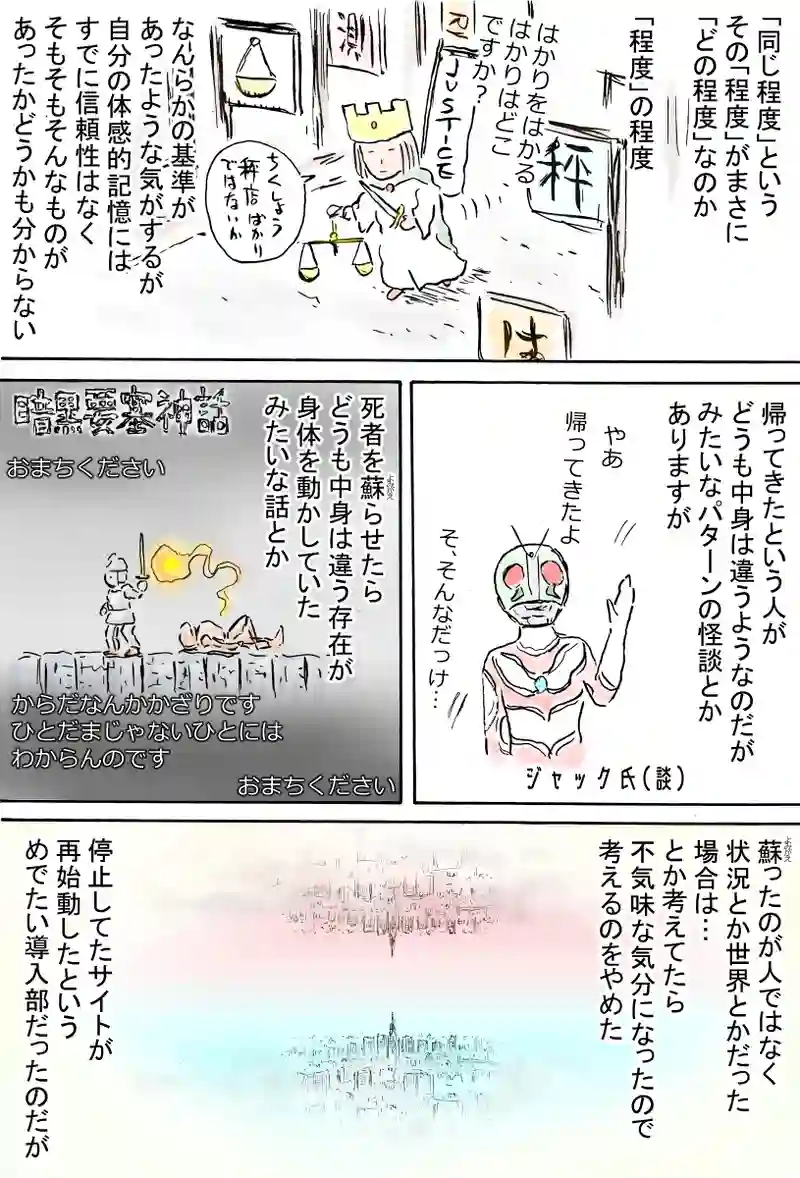 「同じ程度」という
その「程度」がまさに
「どの程度」なのか
「程度」の程度
はかりをはかる
はかりはどこ
ですか?
JUSTICE
秤
は
ちくしょう
秤店ばかり
ではないか
なんらかの基準が
あったような気がするが
自分の体感的記憶には
すでに信頼性はなく
そもそもそんなものが
あったかどうかも分からない
帰ってきたという人が
どうも中身は違うようなのだが
みたいなパターンの怪談とか
ありますが
やあ
帰ってきたよ
そ、そんなだっけ…
ジャック氏(談)
死者を蘇らせたら
よみがえ
どうも中身は違う存在が
身体を動かしていた
みたいな話とか
暗黒要塞神話
おまちください
からだなんかかざりです
ひとだまじゃないひとには
わからんのです
おまちください
蘇ったのが人ではなく
よみがえ
状況とか世界とかだった
場合は…
とか考えてたら
不気味な気分になったので
考えるのをやめた
停止してたサイトが
再始動したという
めでたい導入部だったのだが